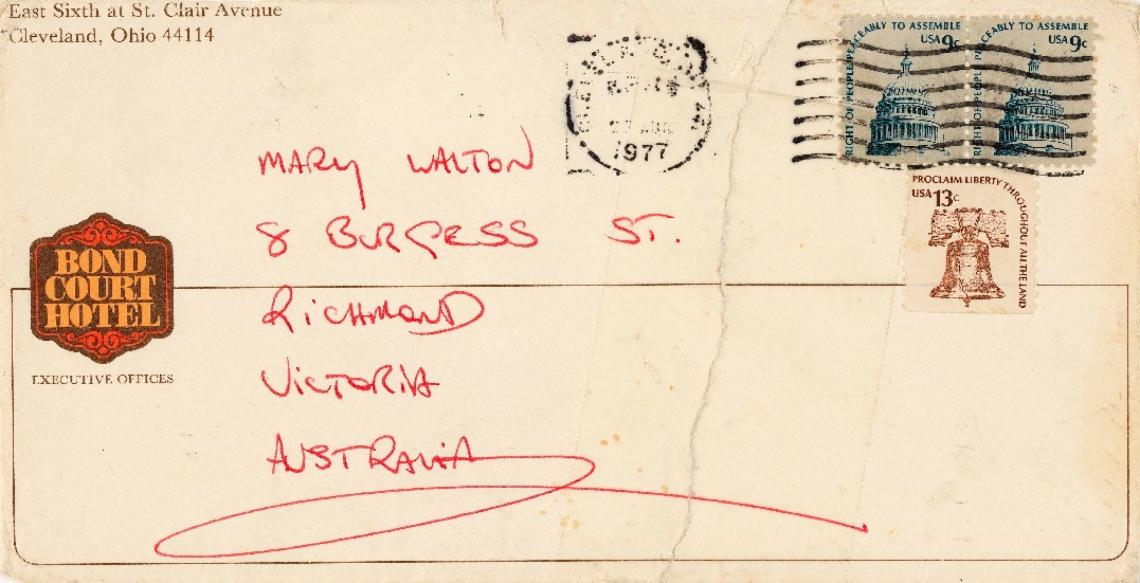 East Sixth at St. Clair Avenue
Cleveland, Ohio 44114
1977
RIGHT OF PEOPLE PEACEABLY TO ASSEMBLE
USA 9c
RIGHT OF PEOPLE PEACEABLY TO ASSEMBLE
USA 9c
PROCLAIM LIBERTY THROUGHOUT ALL THE LAND
USA 13c
MARY WALTON
8 BURGESS ST.
RICHMOND
VICTORIA
AUSTRALIA
BOND
COURT
HOTEL
EXECUTIVE OFFICES